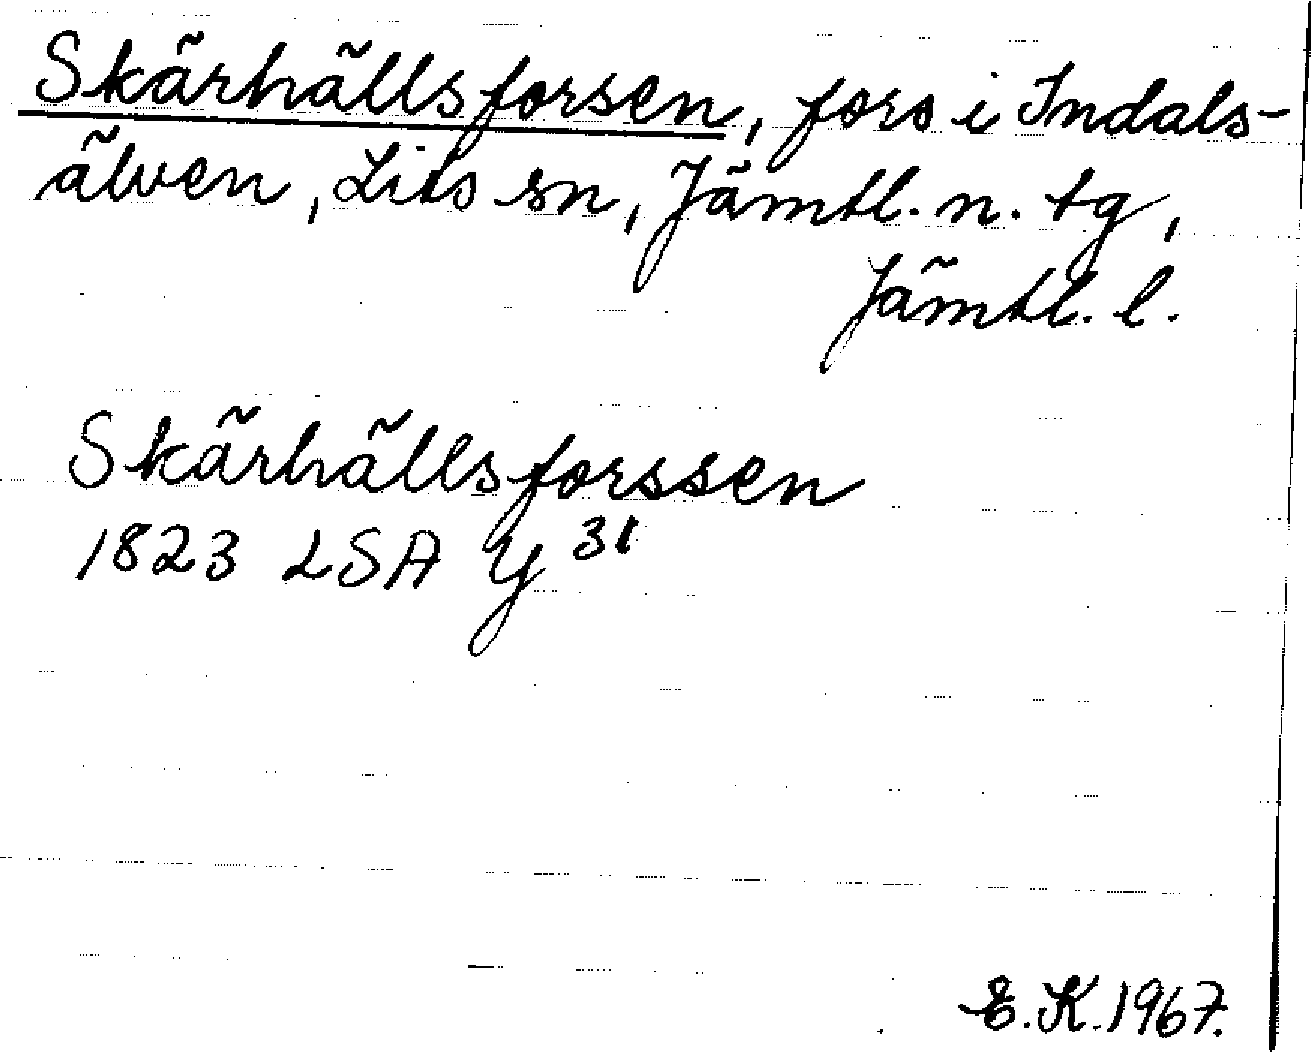 Skärhällsforsen, fors i Indals-
älven, Lits sn, Jämtl. n. tg,
Jämtl. l.
Skärhällsforssen
1823 LSA Y 31
E.K. 1967.